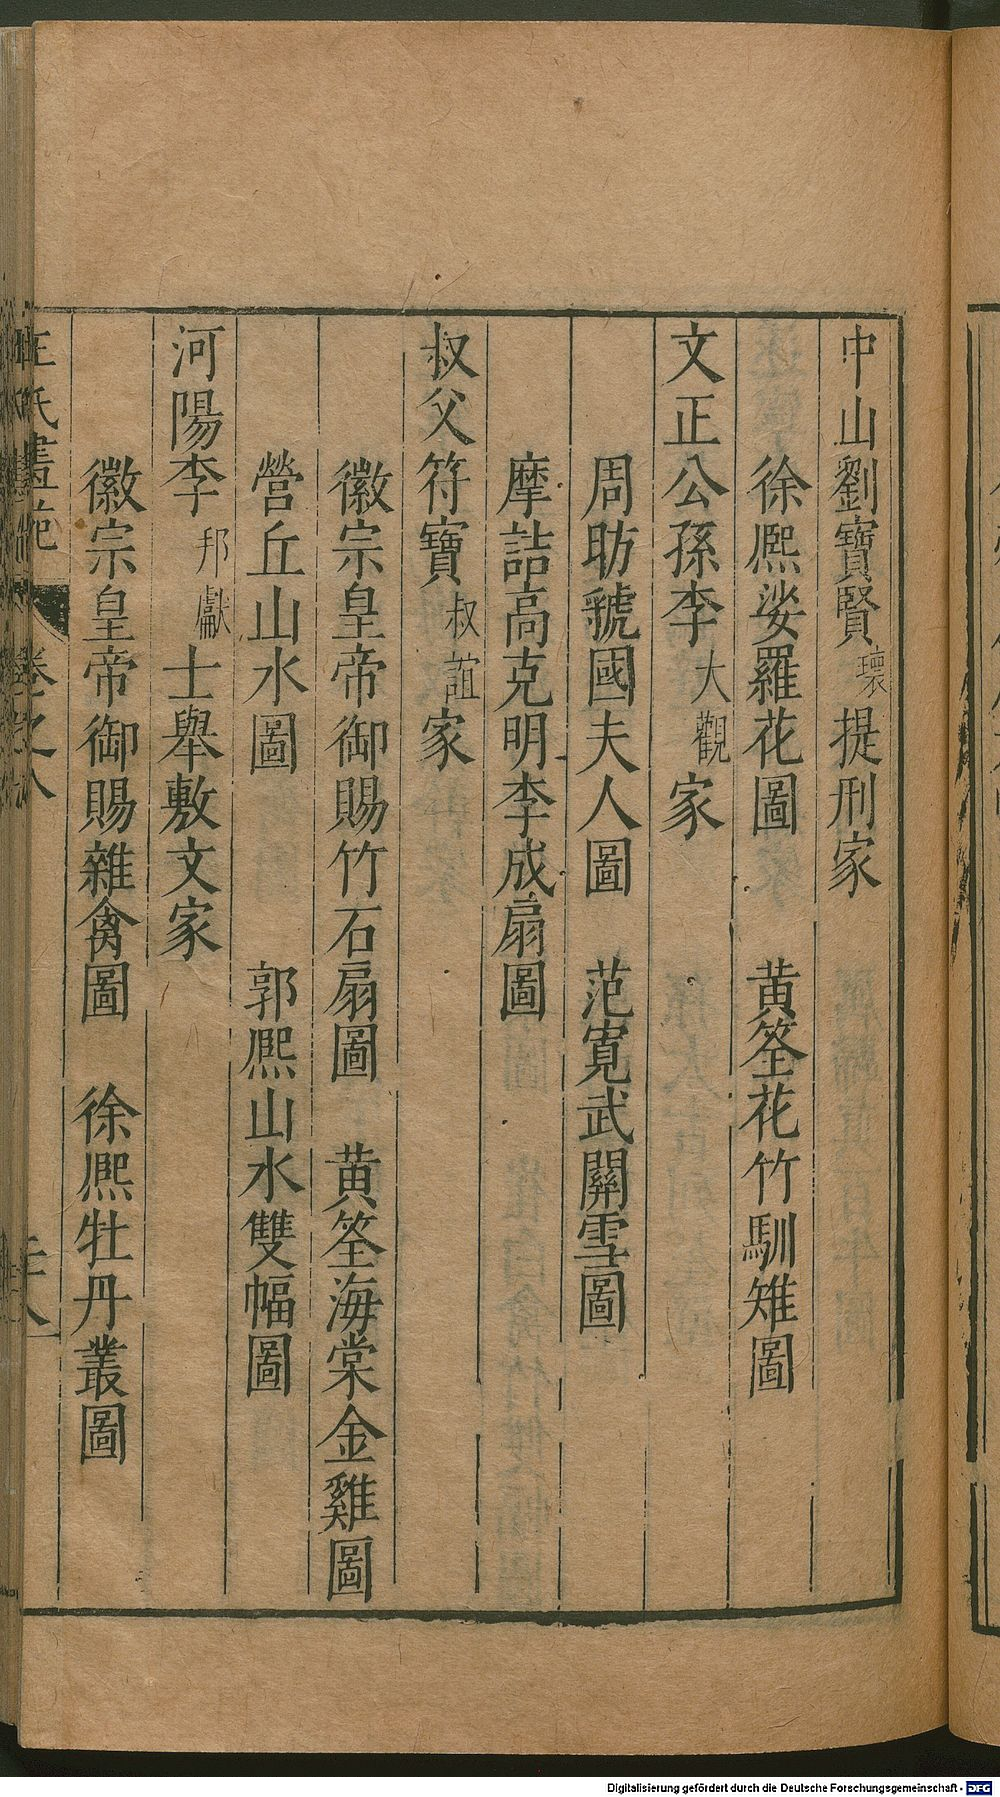 中山劉寶賢瓌提刑家
徐熈娑羅花圖　黃筌花竹馴雉圖
文正公孫李大觀家
周昉虢國夫人圖　范寬武關雪圖
摩詰高克明李成扇圖
叔父符寶叔誼家
徽宗皇帝御賜竹石扇圖　黃筌海棠金雞圖
營丘山水圖　郭熈山水雙幅圖
河陽李邦獻士舉敷文家
徽宗皇帝御賜雜禽圖　徐熈牡丹叢圖
王氏畫苑　卷之八
Digitalisierung gefördert durch die Deutsche Forschungsgemeinschaft - DFG